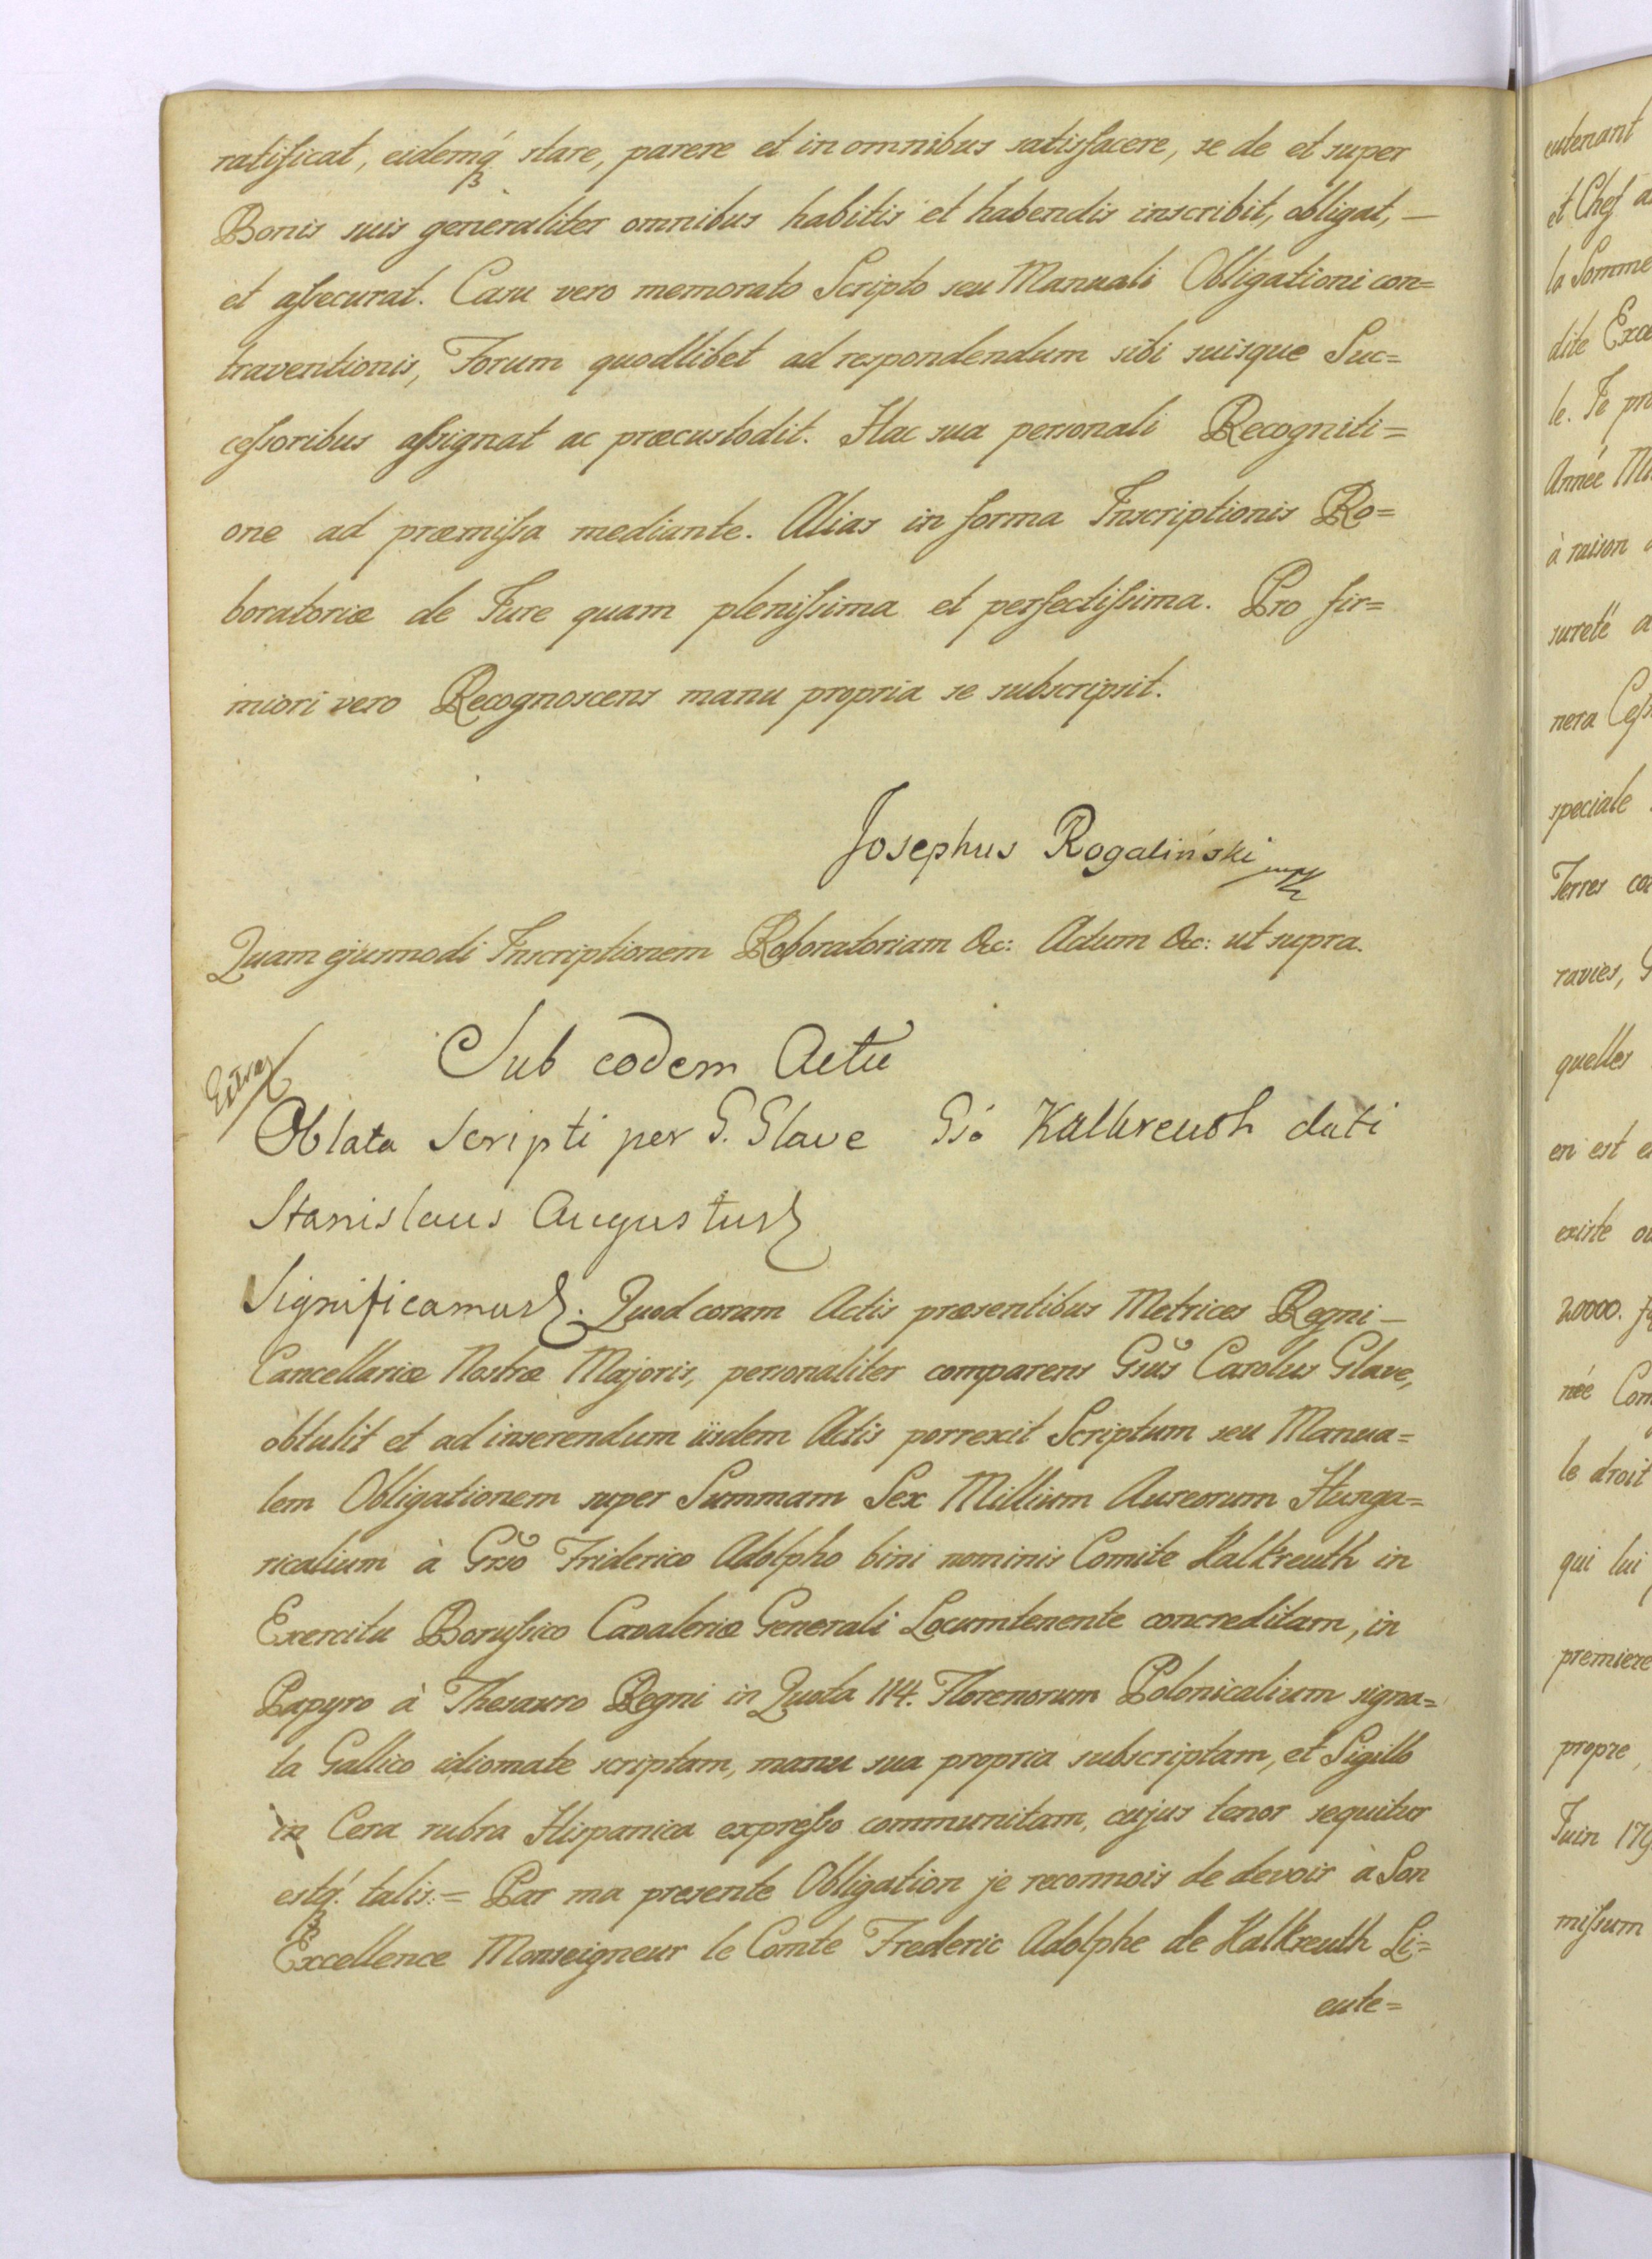 ratificat, eidemq́ꝫ stare, parere et in omnibus satisfacere, se de et super
Bonis suis generaliter omnibus habitis et habendis inscribit, obligat, —
et aſsecurat. Casu vero memorato Scripto seu Manuali Obligationi con=
traventionis, Forum quodlibet ad respondendum sibi suisque Suc=
ceſsoribus aſsignat ac præcustodit. Hac sua personali Recogniti=
one ad præmiſsa mediante. Alias in forma Inscriptionis Ro=
boratoriæ de Jure quam pleniſsima et perfectiſsima. Pro fir=
miori vero Recognoscens manu propria se subscripsit.
Josephus Rogaliński mp
Quam ejusmodi Inscriptionem Roboratoriam &c: Actum &c: ut supra.
Extra
Sub eodem Actu
Oblata Scripti per G. Glave Gső Kalkreuth dati
Stanislaus Augustus
Significamus. Quod coram Actis præsentibus Metrices Regni —
Cancellariæ Nostræ Majoris, personaliter comparens Gsus Carolus Glave,
obtulit et ad inserendum iisdem Actis porrexit Scriptum seu Manua=
lem Obligationem super Summam Sex Millium Aureorum Hunga=
ricalium à Gso Friderico Adolpho bini nominis Comite Kalkreuth in
Exercitu Boruſsico Cavaleriæ Generali Locumtenente concreditam, in
Papyro à Thesauro Regni in Quota 114. Florenorum Polonicalium signa=
ta Gallico idiomate scriptam, manu sua propria subscriptam, et Sigillo
in Cera rubra Hispanica expreſso communitam, cujus tenor sequitur
estq́ꝫ talis: = Par ma presente Obligation je reconnois de devoir à Son
Excellence Monseigneur le Comte Frederic Adolphe de Kalkreuth Li=
eute=
eutenant
et Chef
la Somme
dite
le. Je
Année
à raison
sureté
nera
speciale
Terres
ravies,
quelles
en est
existe
20000.
née
le droit
qui lui
premiere
propre,
Juin
miſsum